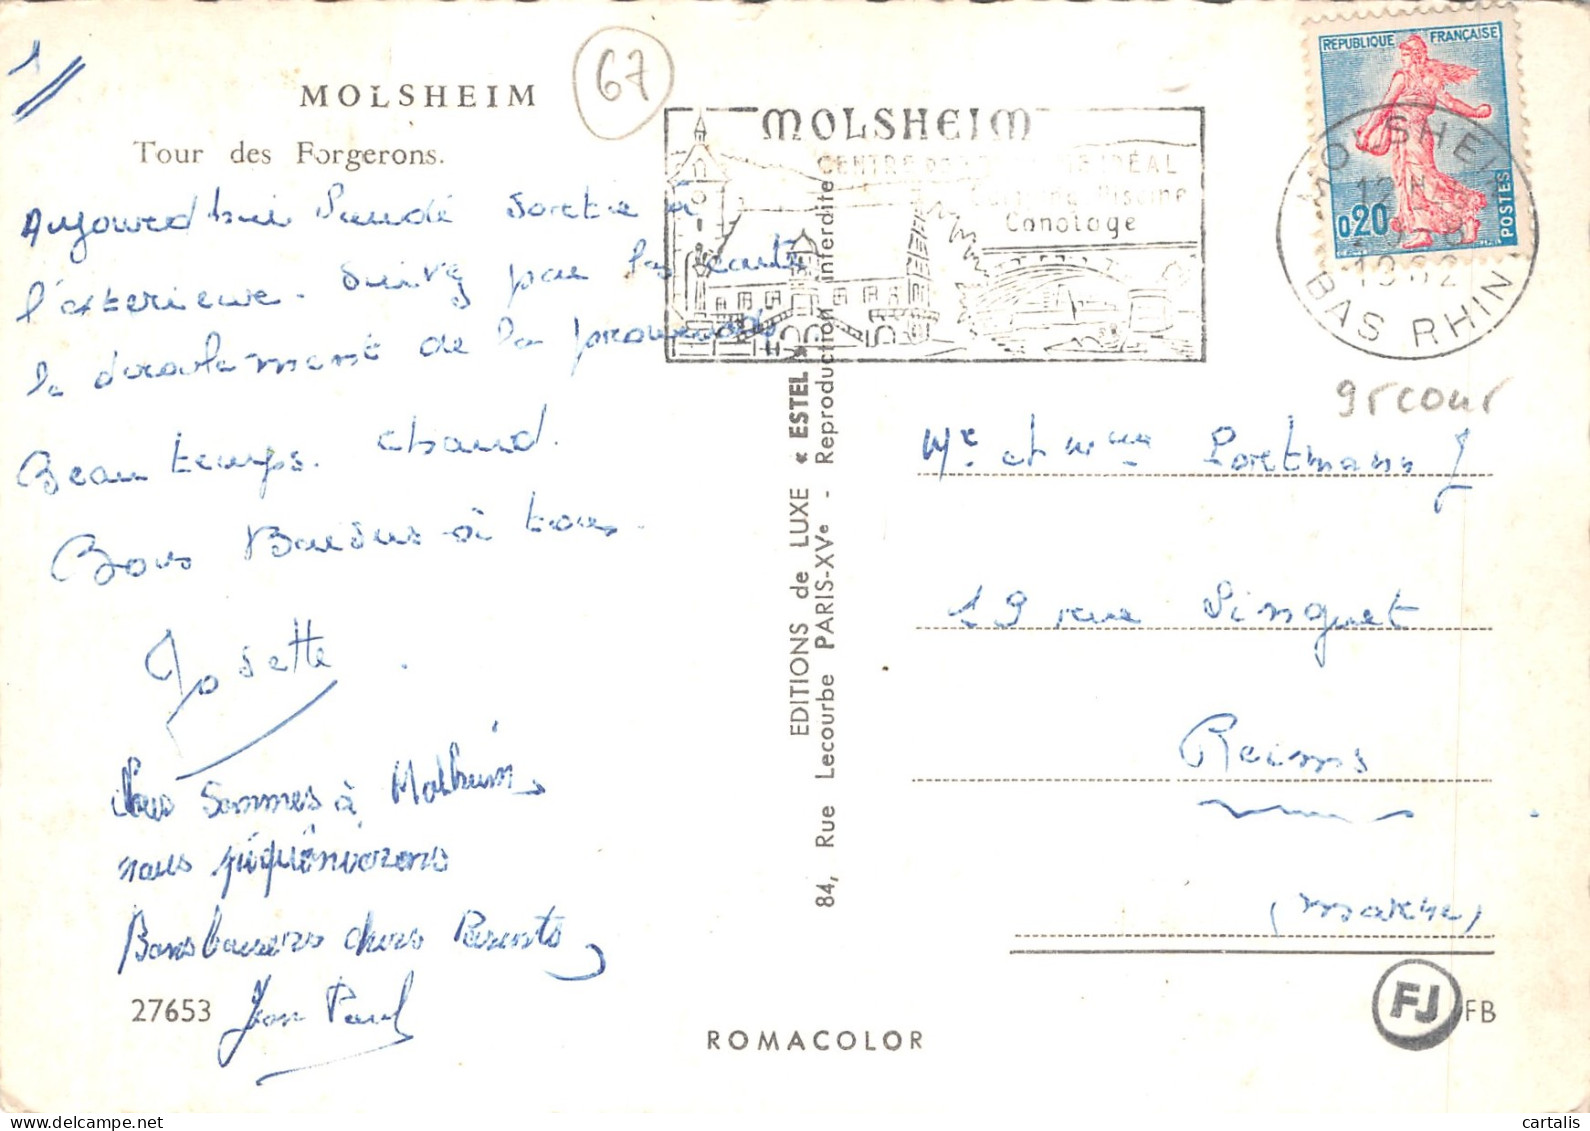 67
MOLSHEIM
Tour des Forgerons.
Aujourd'hui Lundi sortie à
l'exterieure. Suivez par la carte
le deroulement de la promenade
Beau temps. chaud.
Bons Baisers à tous.
Josette
Nous sommes à Molsheim,
nous piqueniquerons
Bons baisers chers Parents
Jean Paul
27653
ROMACOLOR
EDITIONS de LUXE « ESTEL »
84, Rue Lecourbe PARIS-XVe - Reproduction interdite
MOLSHEIM
CENTRE DE IDÉAL
Piscine
Canotage
REPUBLIQUE FRANÇAISE
0,20
POSTES
MOLSHEIM
12H
1962
BAS RHIN
gr cour
Mr et Mme Portmann J
19 rue Linguet
Reims
(Marne)
FJ FB
cartalis
delcampe.net